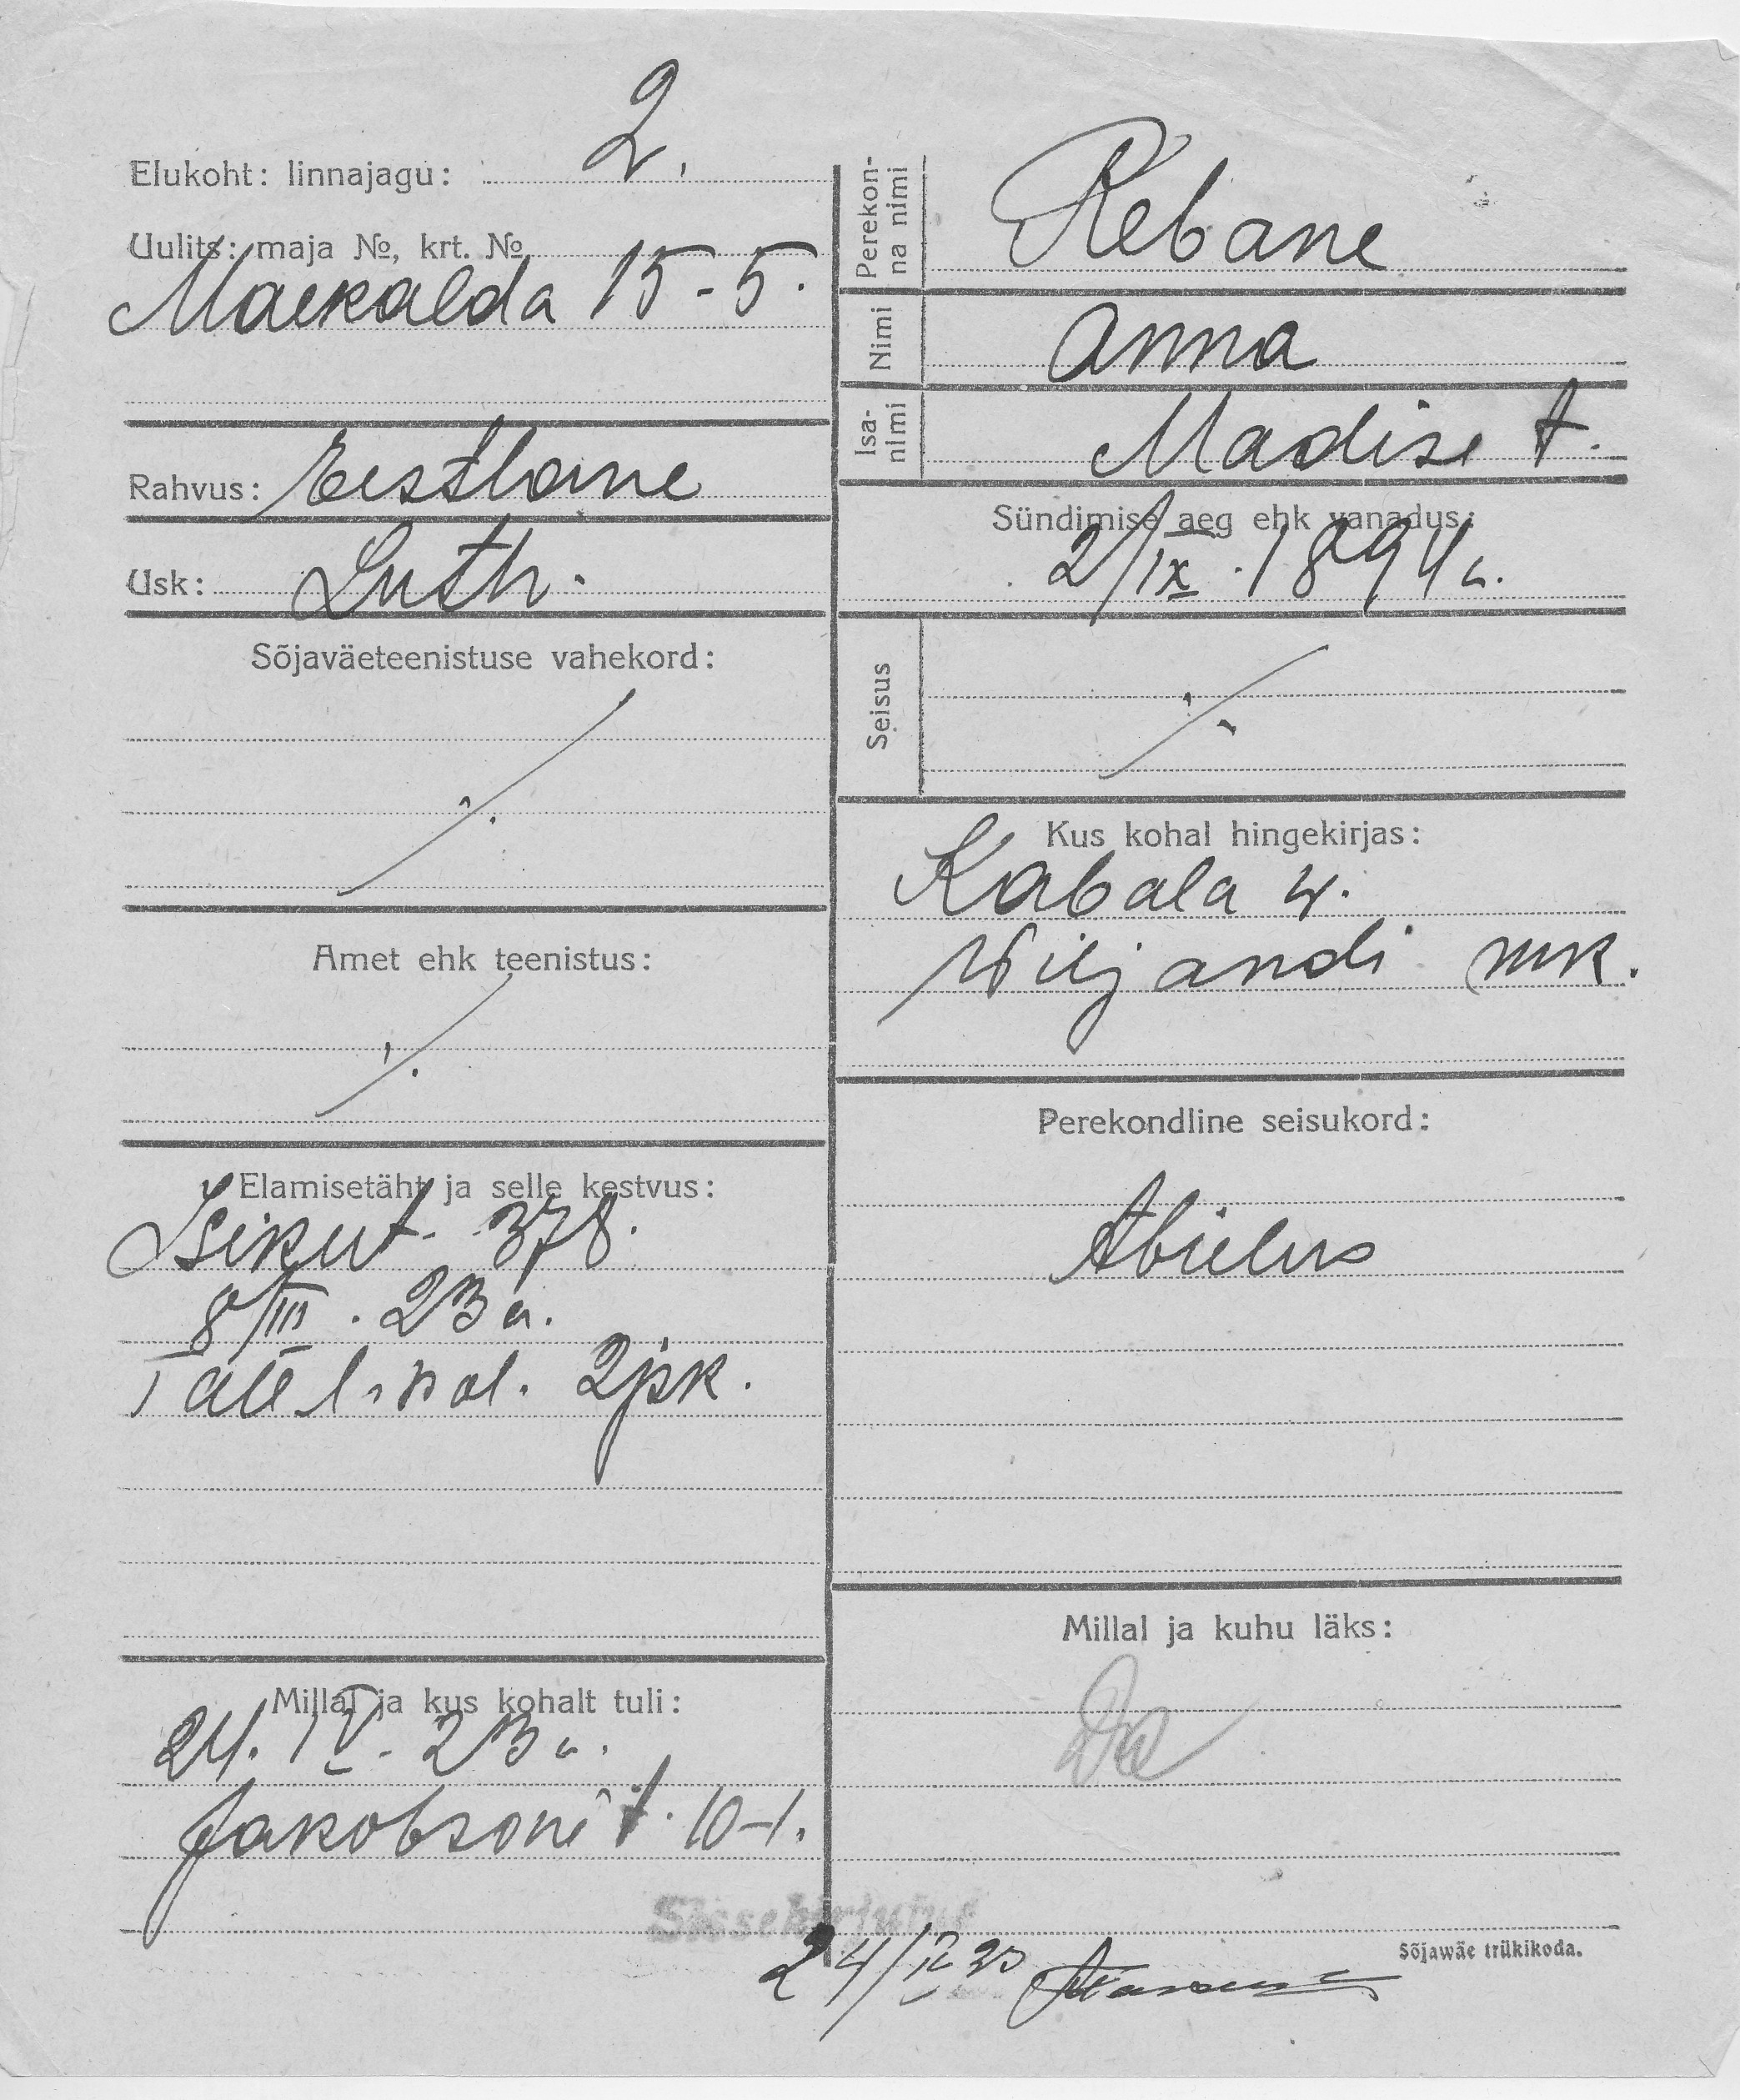 Elukoht: linnajagu: 2.
Uulits: maja №, krt. №
Maekalda 15-5.
Rahvus: Eestlane
Usk: Luth.
Sõjaväeteenistuse vahekord:
Amet ehk teenistus:
Elamisetäht ja selle kestvus:
Isikut. 378.
8/III. 23 a.
Tall. l. pol. 2 jsk.
Millal ja kus kohalt tuli:
24. IV. 23 a.
Jakobsoni t. 10-1.
Perekonna nimi
Rebane
Nimi
Anna
Isa-nimi
Madise t.
Sündimise aeg ehk vanadus:
2/IX. 1894 a.
Seisus
Kus kohal hingekirjas:
Kabala w.
Wiljandi mk.
Perekondline seisukord:
Abielus
Millal ja kuhu läks:
Sissekirjutus
24/IV 23
Sõjawäe trükikoda.